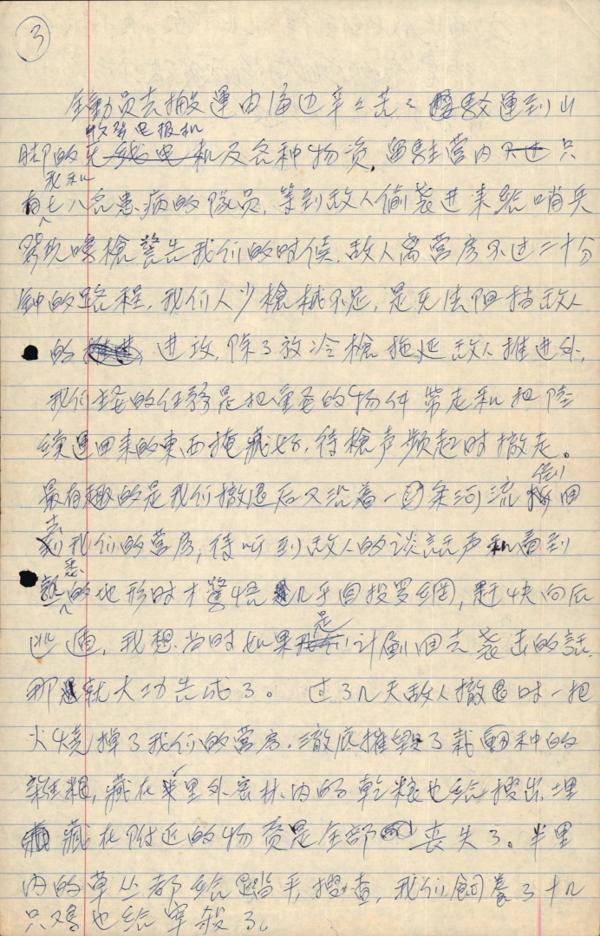 3
全動員去搬運由海边辛辛苦苦 運到山
收发电报机
脚的 及各种物資，留駐营内 只
我和
有七八名患病的隊员，等到敌人偷袭進来給哨兵
發現喽槍警告我们的时候，敌人离营房不过二十分
鈡的路程，我们人少槍械不足，是无法阻挡敌人
的 進攻，除了放冷槍拖延敌人推进外，
我们主要的任務是把重要的物件帶走和把陸
续運回来的東西掩藏好，待槍声频起时撤走。
最有趣的是我们撤退后又沿着一条河流 回
到我们的营房，待听到敌人的谈話声和看到
悉
熟的地形时才驚悟几乎自投罗網，赶快向后
是
逃遁，我想当时如果 计劃回去袭击的話
那就大功告成了。 过了几天敌人撤退时一把
火燒掉了我们的营房，澈底摧毁了栽种的
雜粮，藏在 里外密林内的乾粮也給搜出，埋
藏在附近的物資是全部丧失了。半里
内的草丛都給踏平，搜查，我们飼养了十几
只鸡也给宰殺了。